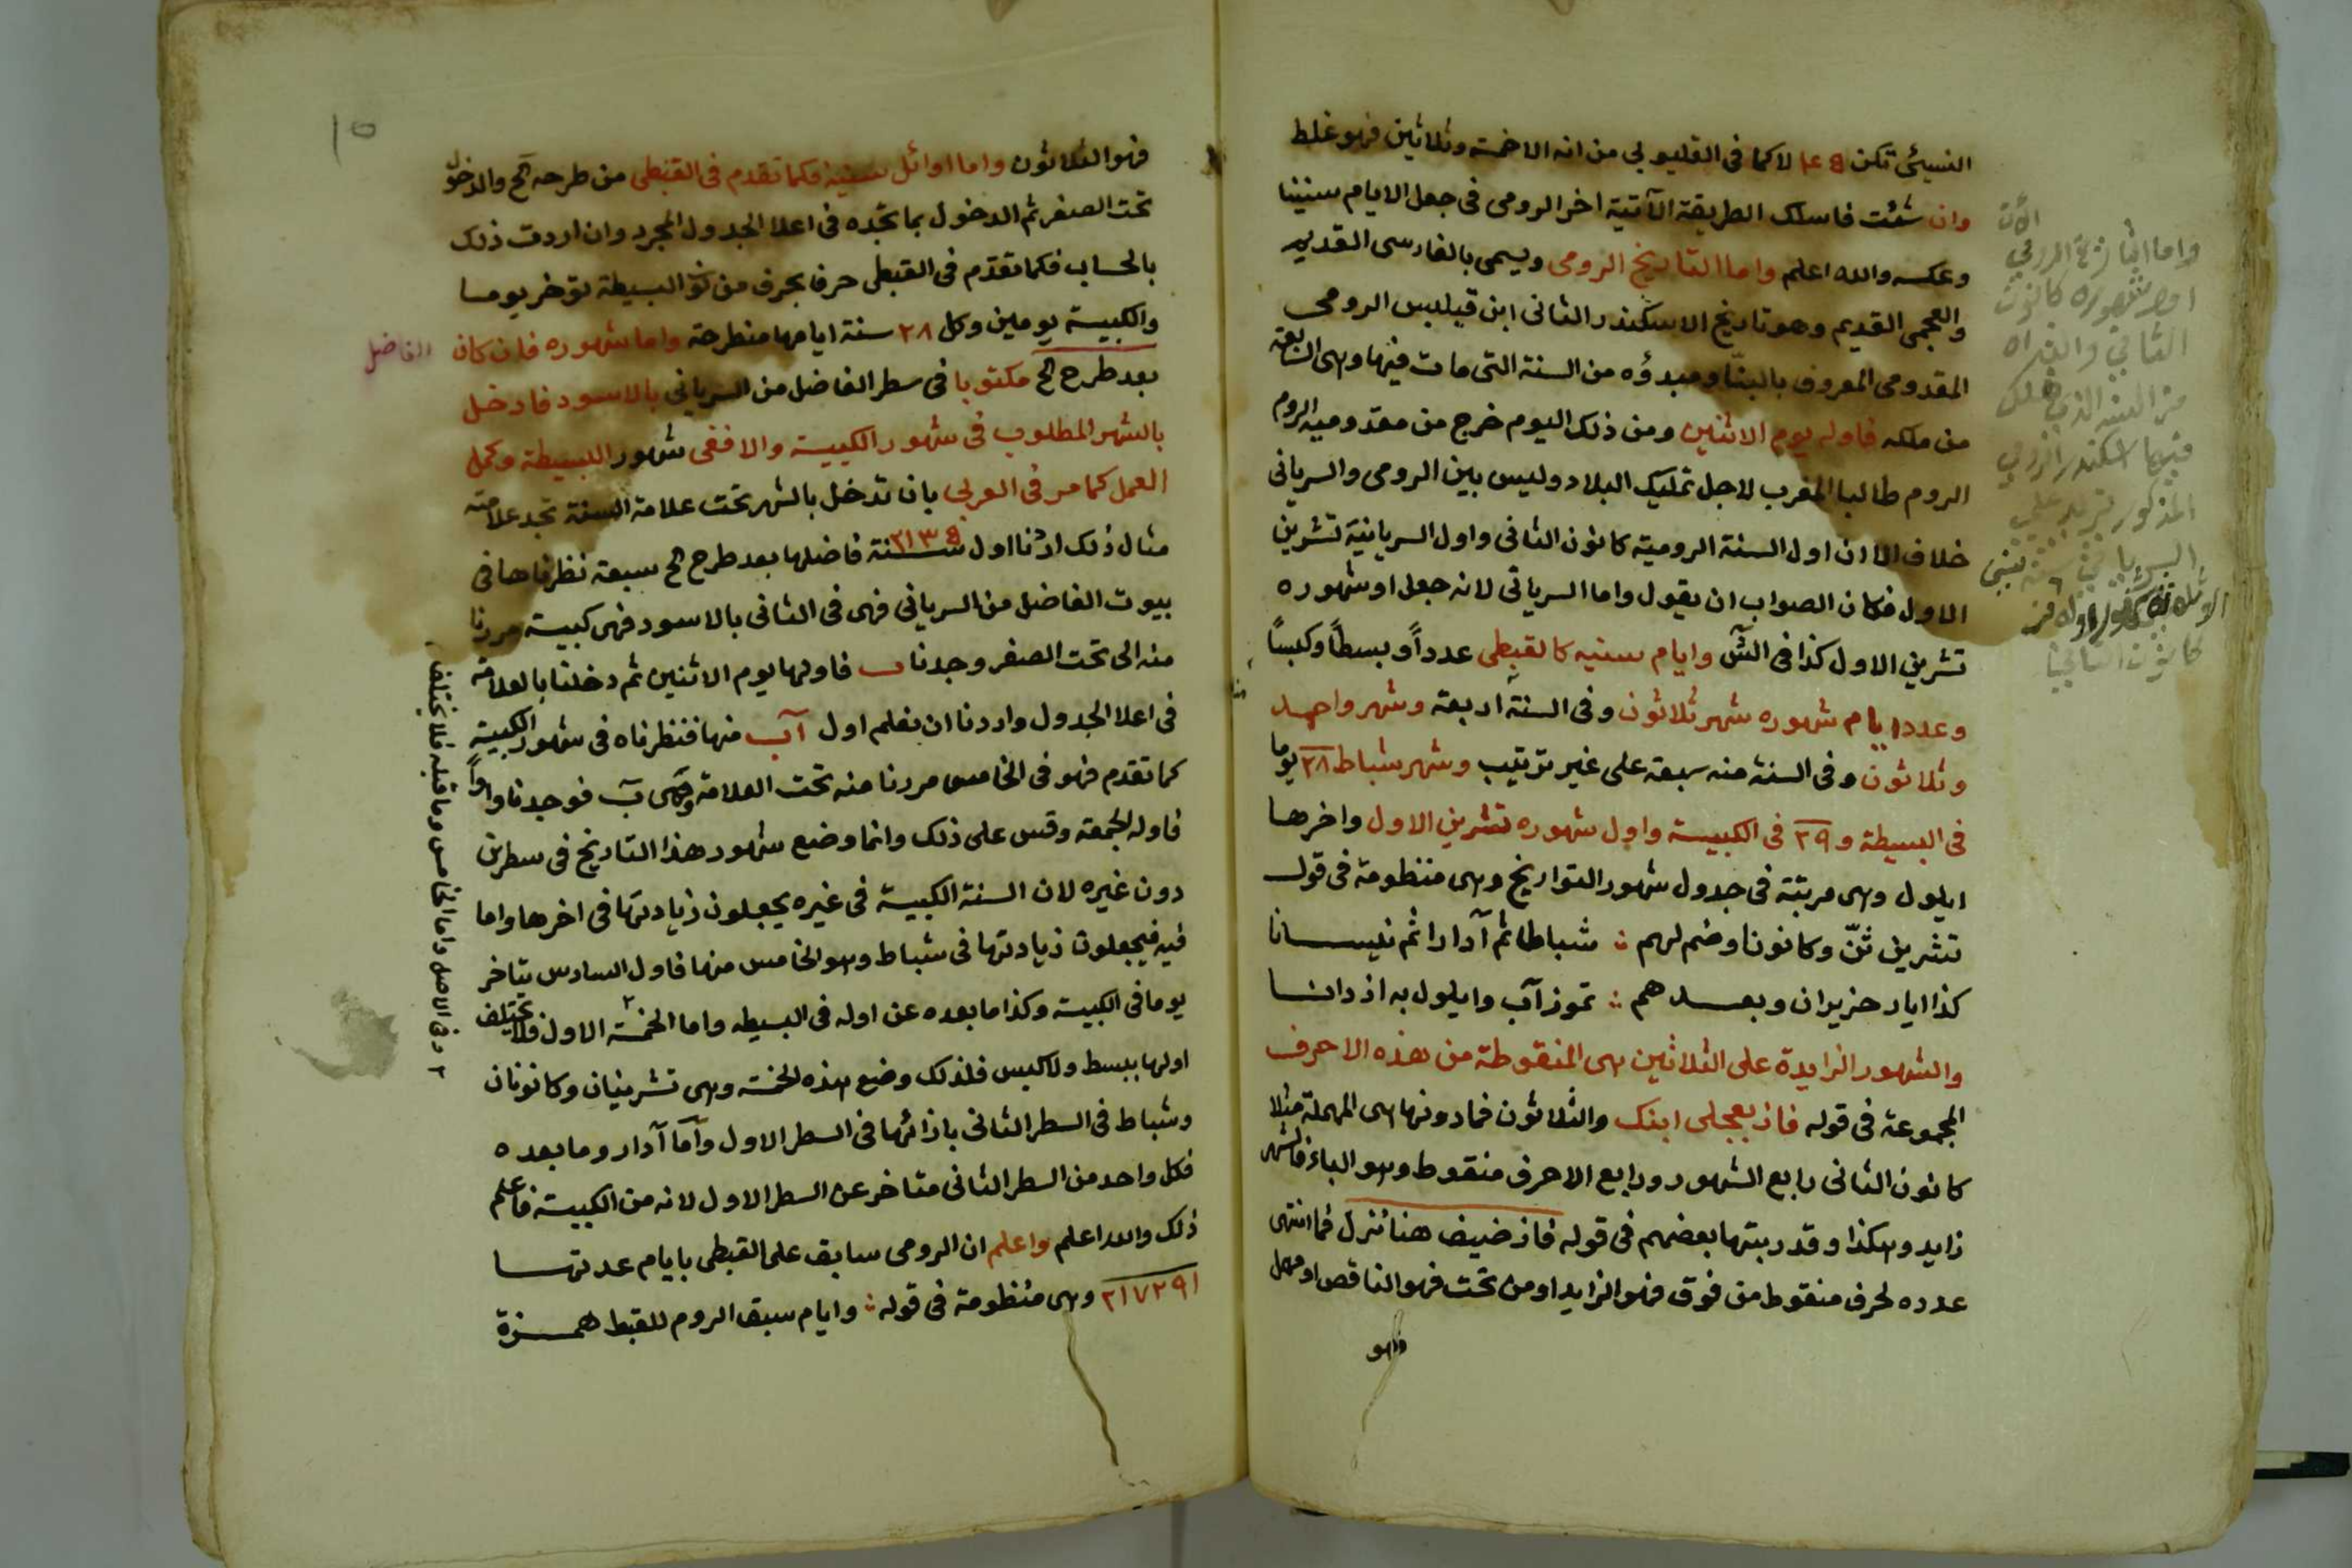 النسيئى تكن ٤١٥ لا كما فى القليوبى من انه الاخمسة وثلاثين فهو غلط
وان شئت فاسلك الطريقة الآتية اخر الرومى فى جعل الايام سنينا
وعكسه والله اعلم واما التاريخ الرومى ويسمى بالفارسى القديم
والعجمى القديم وهو تاريخ الاسكندر الثانى ابن فيلبس الرومى
المقدومى المعروف بالبنّا ومبدؤه من السنة التى مات فيها وهى السابعة
من ملكه فاوله يوم الاثنين ومن ذلك اليوم خرج من مقدومية الروم
الروم طالبا المغرب لاجل تمليك البلاد وليس بين الرومى والسريانى
خلاف الا ان اول السنة الرومية كانون الثانى واول السريانية تشرين
الاول فكان الصواب ان يقول واما السريانى لانه جعل او شهوره
تشرين الاول كذا فى الش وايام سنيه كالقبطى عدداً وبسطاً وكبساً
وعدد ايام شهوره شهر ثلاثون وفى السنة اربعة وشهر واحد
وثلاثون وفى السنة منه سبعة على غير ترتيب وشهر شباط ٢٨ يوما
فى البسيطة و ٢٩ فى الكبيسة واول شهوره تشرين الاول واخرها
ايلول وهى مرتبة فى جدول شهور التواريخ وهى منظومة فى قول
تشرين ثنّ وكانونا وضم لهم ؛ شباطا ثم آدارا ثم نيسانا
كذا ايار حزيران وبعدهم ؛ تموز آب وايلول به ازدانا
والشهور الزايدة على الثلاثين هى المنقوطة من هذه الاحرف
المجموعة فى قوله فاز بعجلى ابنك والثلاثون فما دونها هى المهملة مثلا
كانون الثانى رابع الشهور ورابع الاحرف منقوط وهو الباء فالشهر
زايد وهكذا وقد ربتها بعضهم فى قوله فاز ضيف هنا ننزل فما انتهى
عدده لحرف منقوط من فوق فهو الزايد او من تحت فهو الناقص او مهمل
فهو
الآن
واما التاريخ الرومي
اول شهوره كانون
الثاني
فيها اسكندر الرومي
المذكور
١٥
فهو الثلاثون واما اوائل سنينه فكما تقدم فى القبطى من طرحه كح والدخول
تحت الصفر ثم الدخول بما تجده فى اعلا الجدول المجرد وان اردت ذلك
بالحساب فكما تقدّم فى القبطى حرفا بحرف من البسيطة تؤخر يوما
والكبيسة يومين وكل ٢٨ سنة ايامها منطرحة واما شهوره فان كان الفاضل
بعد طرح كح مكتوبا فى سطر الفاضل من السريانى بالاسود فادخل
بالشهر المطلوب فى شهور الكبيسة والا ففى شهور البسيطة وكمل
العمل كما مر فى العربى بان تدخل بالشهر تحت علامة السنة تجد علامته
مثال ذلك اردنا اول سنة ٢١٣٥ فاضلها بعد طرح كح سبعة نظرناها فى
بيوت الفاضل من السريانى فهى فى الثانى بالاسود فهى كبيسة مررنا
منه الى تحت الصفر وجدنا ب فاولها يوم الاثنين ثم دخلنا بالعلامة
فى اعلا الجدول واردنا ان نعلم اول آب منها فنظرناه فى شهور الكبيسة
كما تقدم فهو فى الخامس مررنا منه تحت العلامة وهى ب فوجدنا واواً
فاوله الجمعة وقس على ذلك وانما وضع شهور هذا التاريخ فى سطرين
دون غيره لان السنة الكبيسة فى غيره يجعلون زيادتها فى اخرها واما
فيه فيجعلون زيادتها فى شباط وهو الخامس منها فاول السادس يتاخر
يوما فى الكبيسة وكذا ما بعده عن اوله فى البسيطه واما الخمسة ٢ الاول فلا تختلف
اولها ببسط ولا كبس فلذلك وضع هذه الخمسة وهى تشرينان وكانونان
وشباط فى السطر الثانى بازائها فى السطر الاول وأما آدار وما بعده
فكل واحد من السطر الثانى متاخر عن السطر الاول لانه من الكبيسة فاعلم
ذلك والله اعلم واعلم ان الرومى سابق على القبطى بايام عدتها
٢١٧٢٩١ وهى منظومة فى قوله ؛ وايام سبق الروم للقبط همزة
٢ وفى الاصل واما الخامس وما قبله فلا يختلف